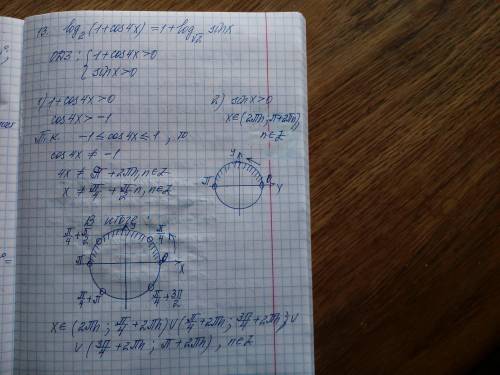 13. log₂(1+cos4x) = 1+log_√2 sinx
ОДЗ: { 1+cos4x>0
sinx>0
1) 1+cos4x>0
cos4x>-1
Т.к. -1≤cos4x≤1, то
cos4x≠-1
4x≠π+2πn, n∈Z
x≠π/4+π/2 n, n∈Z
2) sinx>0
x∈(2πn; π+2πn),
n∈Z
y
π 0 x
В итоге:
π/4+π/2 π/4
π 0 x
π/4+π π/4+3π/2
x∈(2πn; π/4+2πn)∪(π/4+2πn; 3π/4+2πn)∪
∪(3π/4+2πn; π+2πn), n∈Z